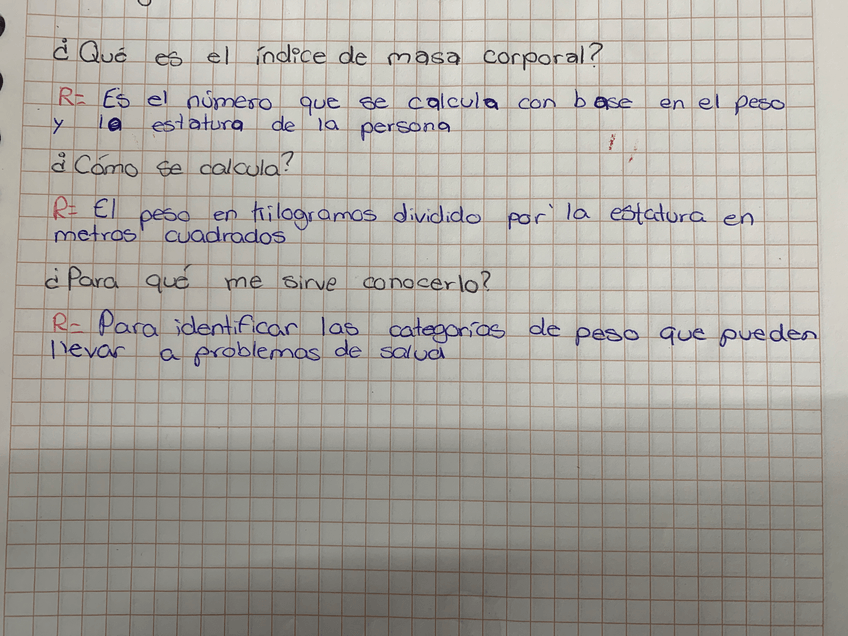 ¿Qué es el índice de masa corporal?
R= Es el número que se calcula con base en el peso
y la estatura de la persona
¿Cómo se calcula?
R= El peso en kilogramos dividido por la estatura en
metros cuadrados
¿Para qué me sirve conocerlo?
R= Para identificar las categorías de peso que pueden
llevar a problemas de salud